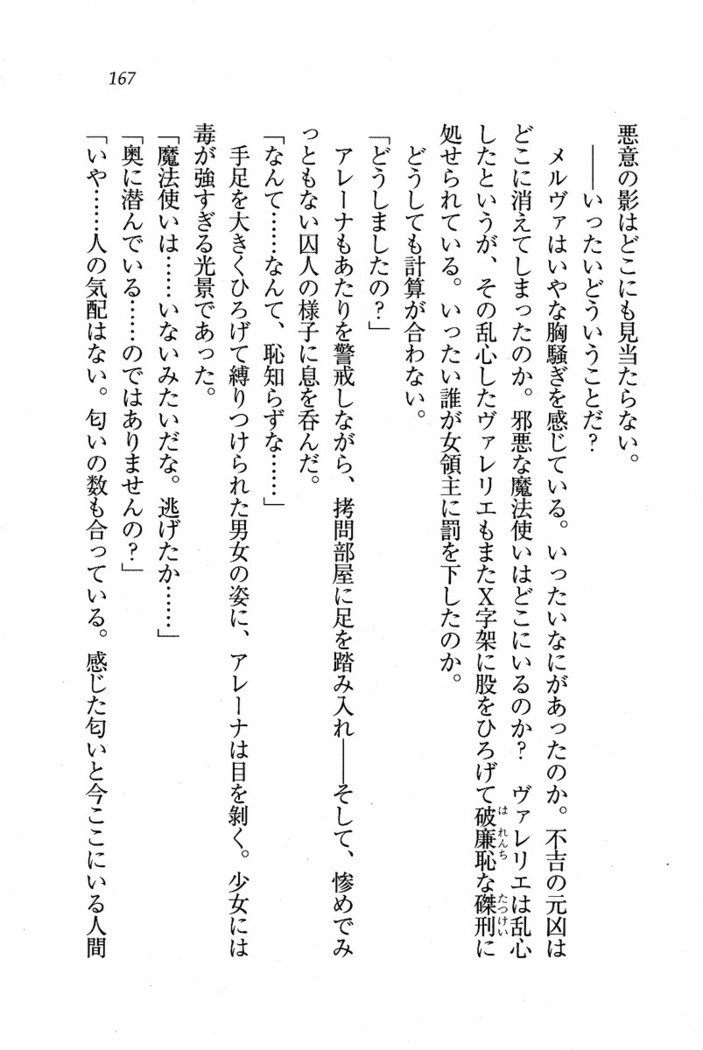 167
悪意の影はどこにも見当たらない。
――いったいどういうことだ？
メルヴァはいやな胸騒ぎを感じている。いったいなにがあったのか。不吉の元凶は
どこに消えてしまったのか。邪悪な魔法使いはどこにいるのか？　ヴァレリエは乱心
したというが、その乱心したヴァレリエもまたX字架に股をひろげて破廉恥な磔刑に
処せられている。いったい誰が女領主に罰を下したのか。
どうしても計算が合わない。
「どうしましたの？」
アレーナもあたりを警戒しながら、拷問部屋に足を踏み入れ――そして、惨めでみ
っともない囚人の様子に息を呑んだ。
「なんて……なんて、恥知らずな……」
手足を大きくひろげて縛りつけられた男女の姿に、アレーナは目を剝く。少女には
毒が強すぎる光景であった。
「魔法使いは……いないみたいだな。逃げたか……」
「奥に潜んでいる……のではありませんの？」
「いや……人の気配はない。匂いの数も合っている。感じた匂いと今ここにいる人間